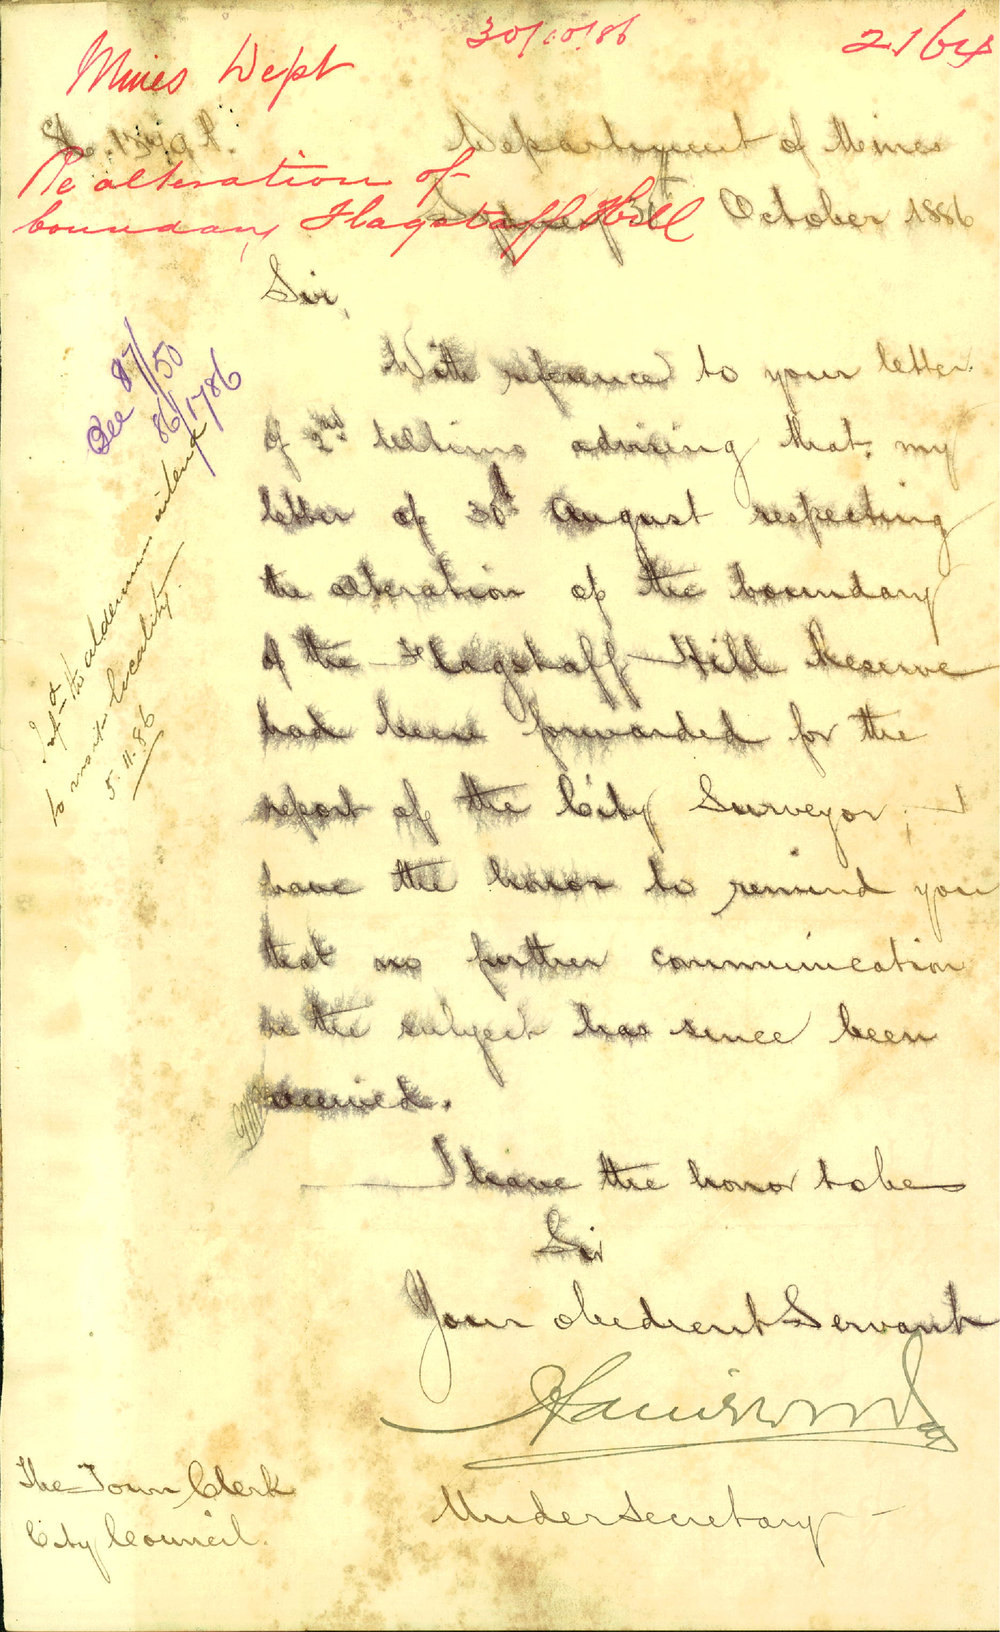 30/10/86
2164
Mines Dept
Department of Mines
Re alteration of
boundary Flagstaff Hill
Sydney October 1886
Sir,
See 87/50
86/1786
With reference to your letter
of 2nd ultimo advising that my
letter of 30th August respecting
the alteration of the boundary
of the Flagstaff Hill Reserve
had been forwarded for the
report of the City Surveyor, I
have the honor to remind you
that no further communication
on the subject has since been
received.
the aldermen intend
to visit locality.
5.11.86
I have the honor to be
Sir
Your obedient Servant
Harrie Wood
Under Secretary
The Town Clerk
City Council.